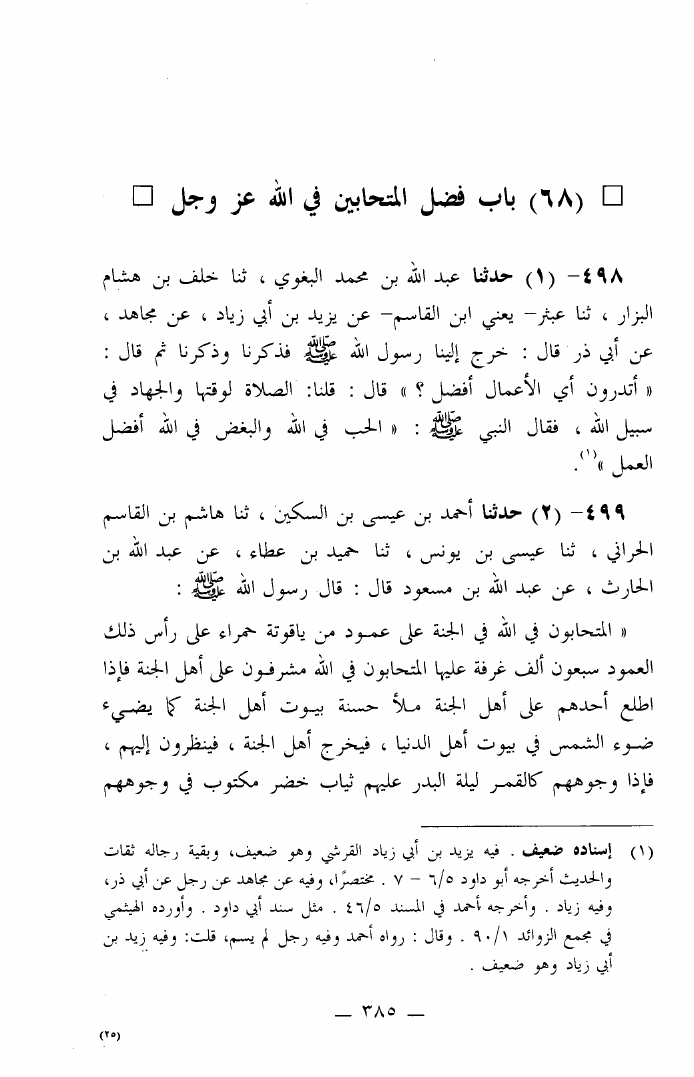 □ (٦٨) باب فضل المتحابين في الله عز وجل □
٤٩٨- (١) حدثنا عبد الله بن محمد البغوي ، ثنا خلف بن هشام
البزار ، ثنا عبثر- يعني ابن القاسم- عن يزيد بن أبي زياد ، عن مجاهد ،
عن أبي ذر قال : خرج إلينا رسول الله ﷺ فذكرنا وذكرنا ثم قال :
« أتدرون أي الأعمال أفضل ؟ » قال : قلنا: الصلاة لوقتها والجهاد في
سبيل الله ، فقال النبي ﷺ : « الحب في الله والبغض في الله أفضل
العمل »(١).
٤٩٩- (٢) حدثنا أحمد بن عيسى بن السكين ، ثنا هاشم بن القاسم
الحراني ، ثنا عيسى بن يونس ، ثنا حميد بن عطاء ، عن عبد الله بن
الحارث ، عن عبد الله بن مسعود قال : قال رسول الله ﷺ :
« المتحابون في الله في الجنة على عمود من ياقوتة حمراء على رأس ذلك
العمود سبعون ألف غرفة عليها المتحابون في الله مشرفون على أهل الجنة فإذا
اطلع أحدهم على أهل الجنة ملأ حسنة بيوت أهل الجنة كما يضيء
ضوء الشمس في بيوت أهل الدنيا ، فيخرج أهل الجنة ، فينظرون إليهم ،
فإذا وجوههم كالقمر ليلة البدر عليهم ثياب خضر مكتوب في وجوههم
(١) إسناده ضعيف . فيه يزيد بن أبي زياد القرشي وهو ضعيف، وبقية رجاله ثقات
والحديث أخرجه أبو داود ٦/٥ – ٧ . مختصرًا، وفيه عن مجاهد عن رجل عن أبي ذر،
وفيه زياد . وأخرجه أحمد في المسند ٤٦/٥ . مثل سند أبي داود . وأورده الهيثمي
في مجمع الزوائد ٩٠/١ . وقال : رواه أحمد وفيه رجل لم يسم، قلت: وفيه زيد بن
أبي زياد وهو ضعيف .
— ٣٨٥ —
(٢٥)